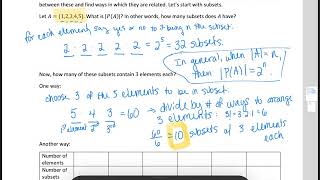 between these and find ways in which they are related. Let's start with subsets.
Let A = {1,2,3,4,5}. What is |P(A)|? In other words, how many subsets does A have?
for each element say yes or no to it being in the subset.
2 · 2 · 2 · 2 · 2 = 2⁵ = 32 subsets.
In general, when |A| = n,
then |P(A)| = 2ⁿ.
Now, how many of these subsets contain 3 elements each?
One way:
choose 3 of the 5 elements to be in subset.
5 4 3 = 60 → divide by # of ways to arrange
1st element 2nd 3rd
3 elements: 3! = 3·2·1 = 6
60/6 = 10 subsets of 3 elements
each
Another way:
Number of
elements
Number of
subsets